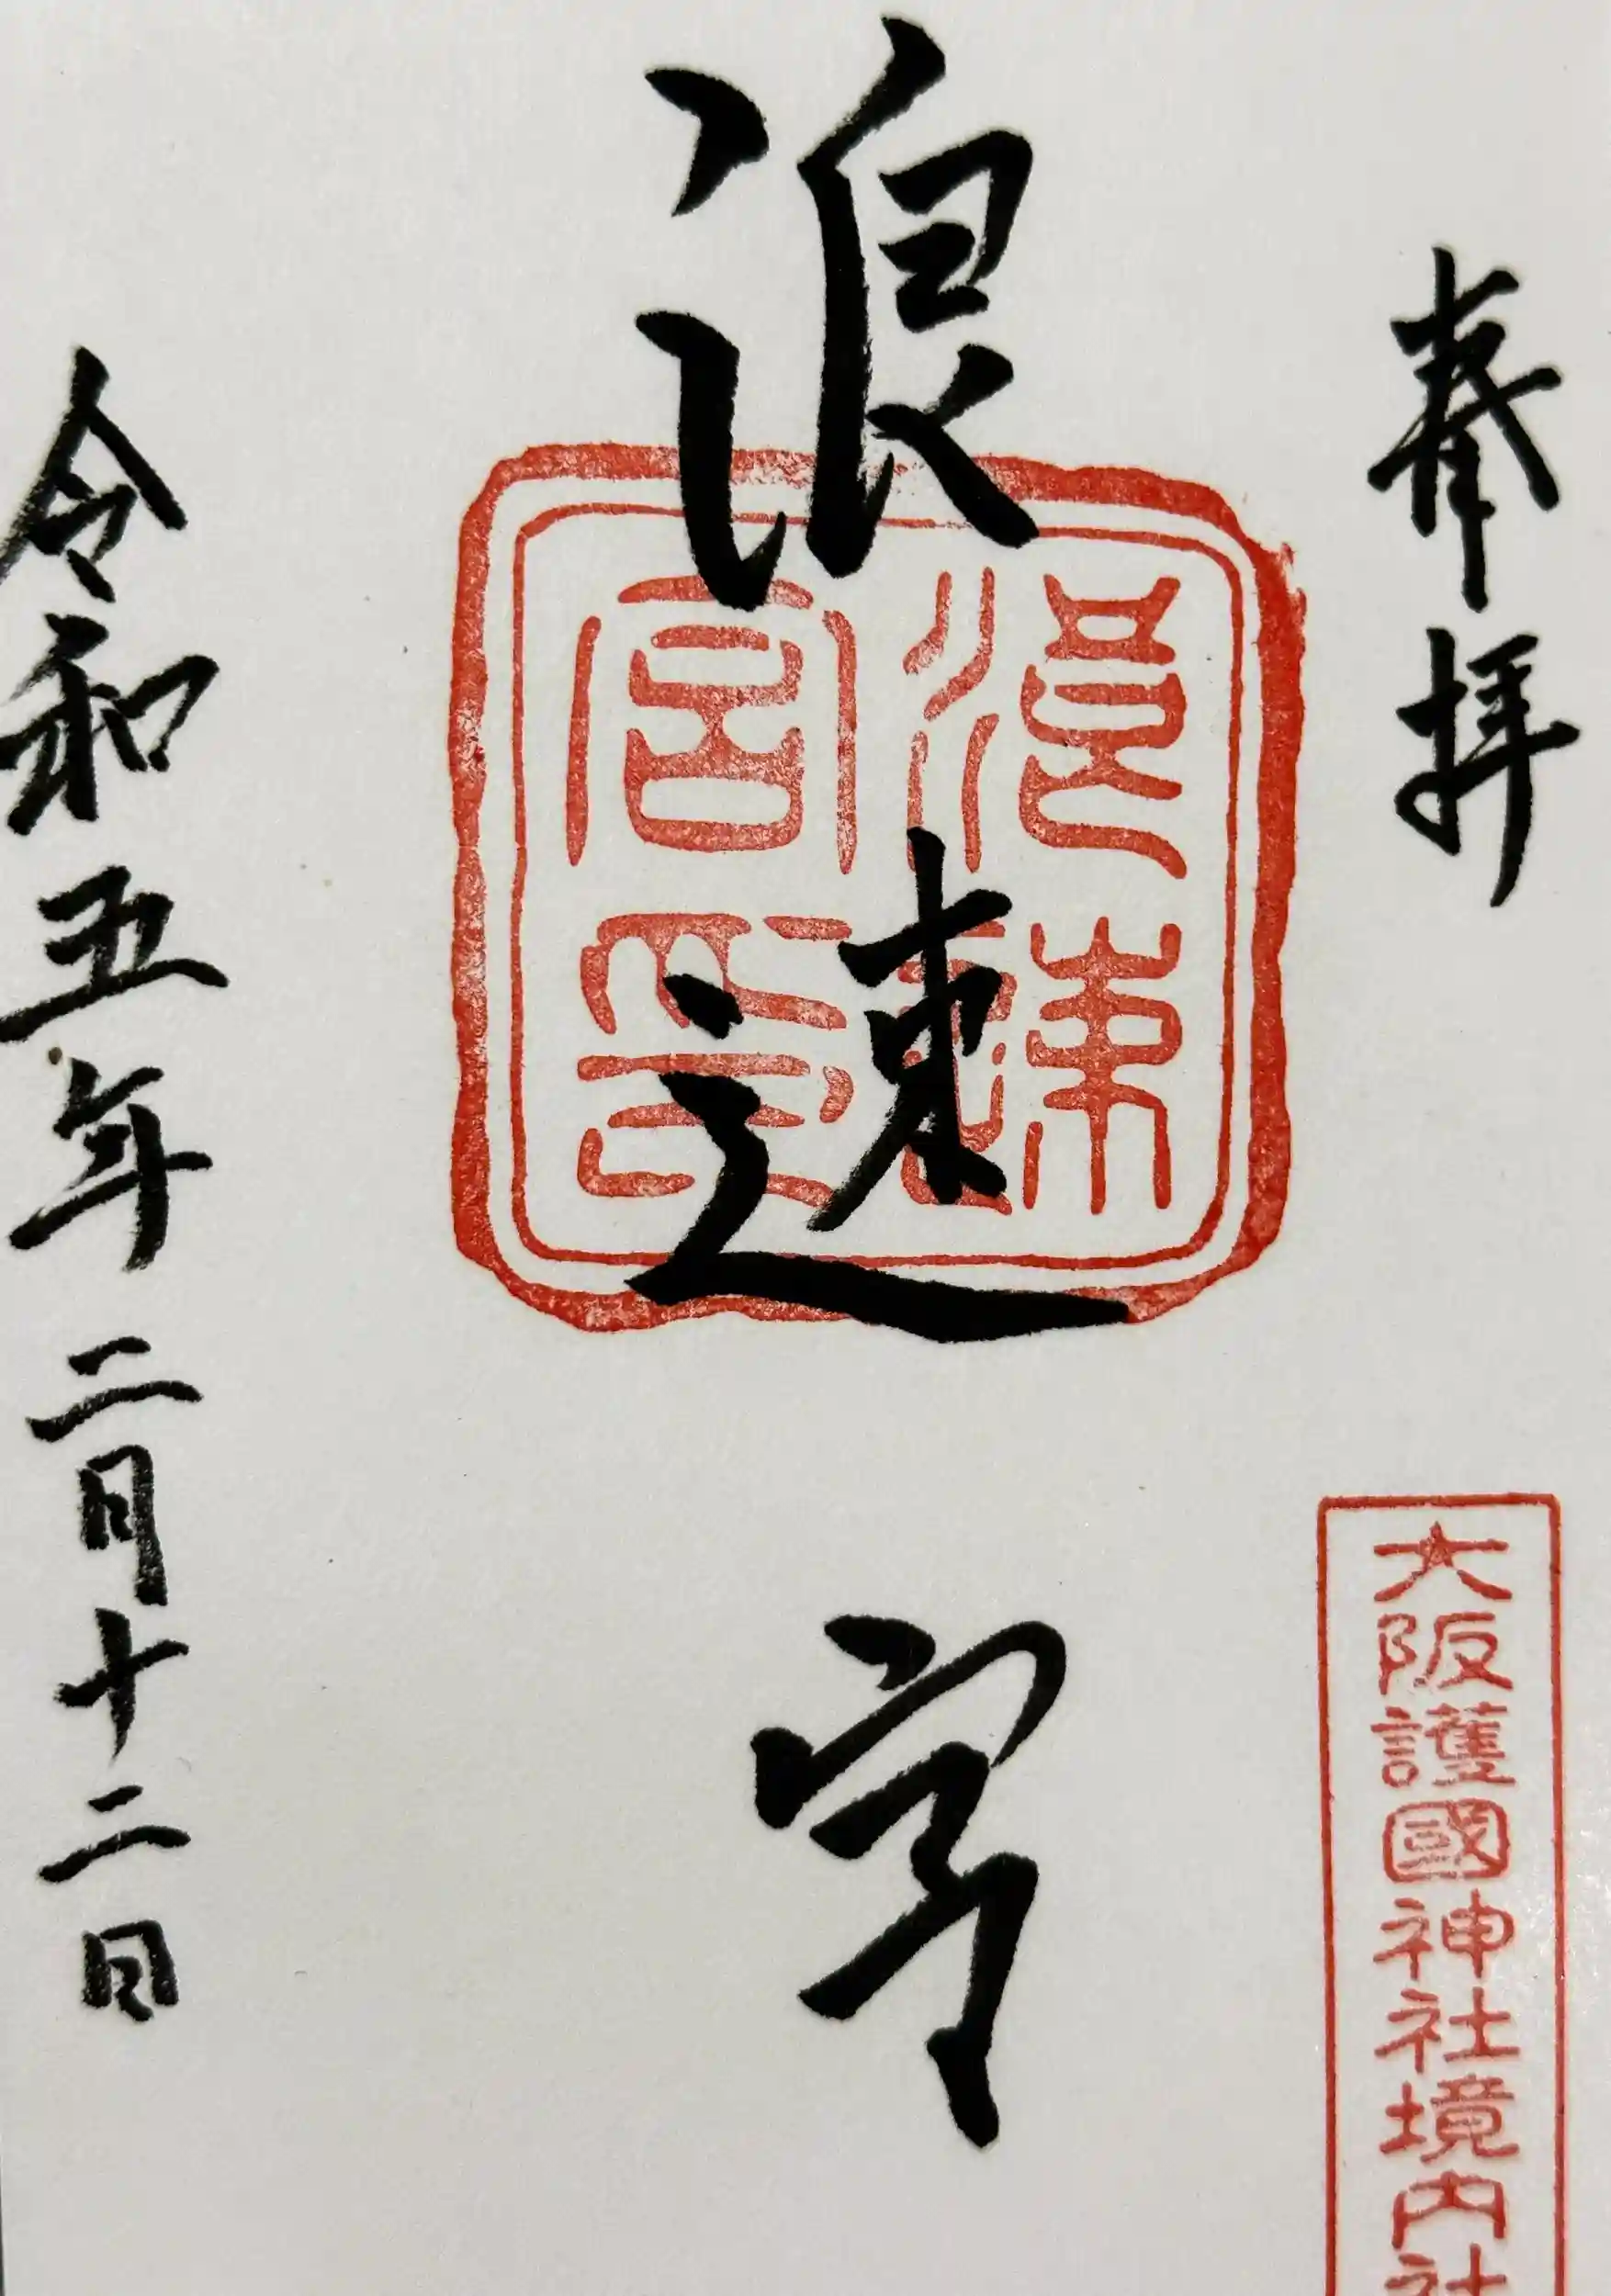 奉拝
大阪護國神社境内社
浪速宮
浪速
宮印
令和五年二月十二日